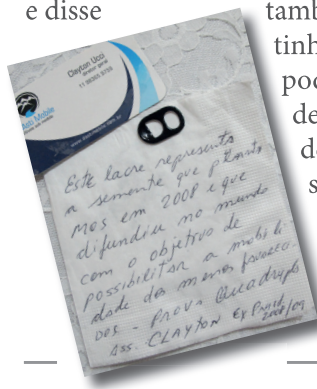 e disse
també
tinh
pod
de
de
s
Clayton Ucci
diretor geral
Mobile
Este lacre representa
a semente que planta
mos em 2008 e que
difundiu no mundo
com o objetivo de
possibilitar a mobili-
dade dos menos favoreci-
dos - Prova Quadrupla
ass. CLAYTON
2008/09